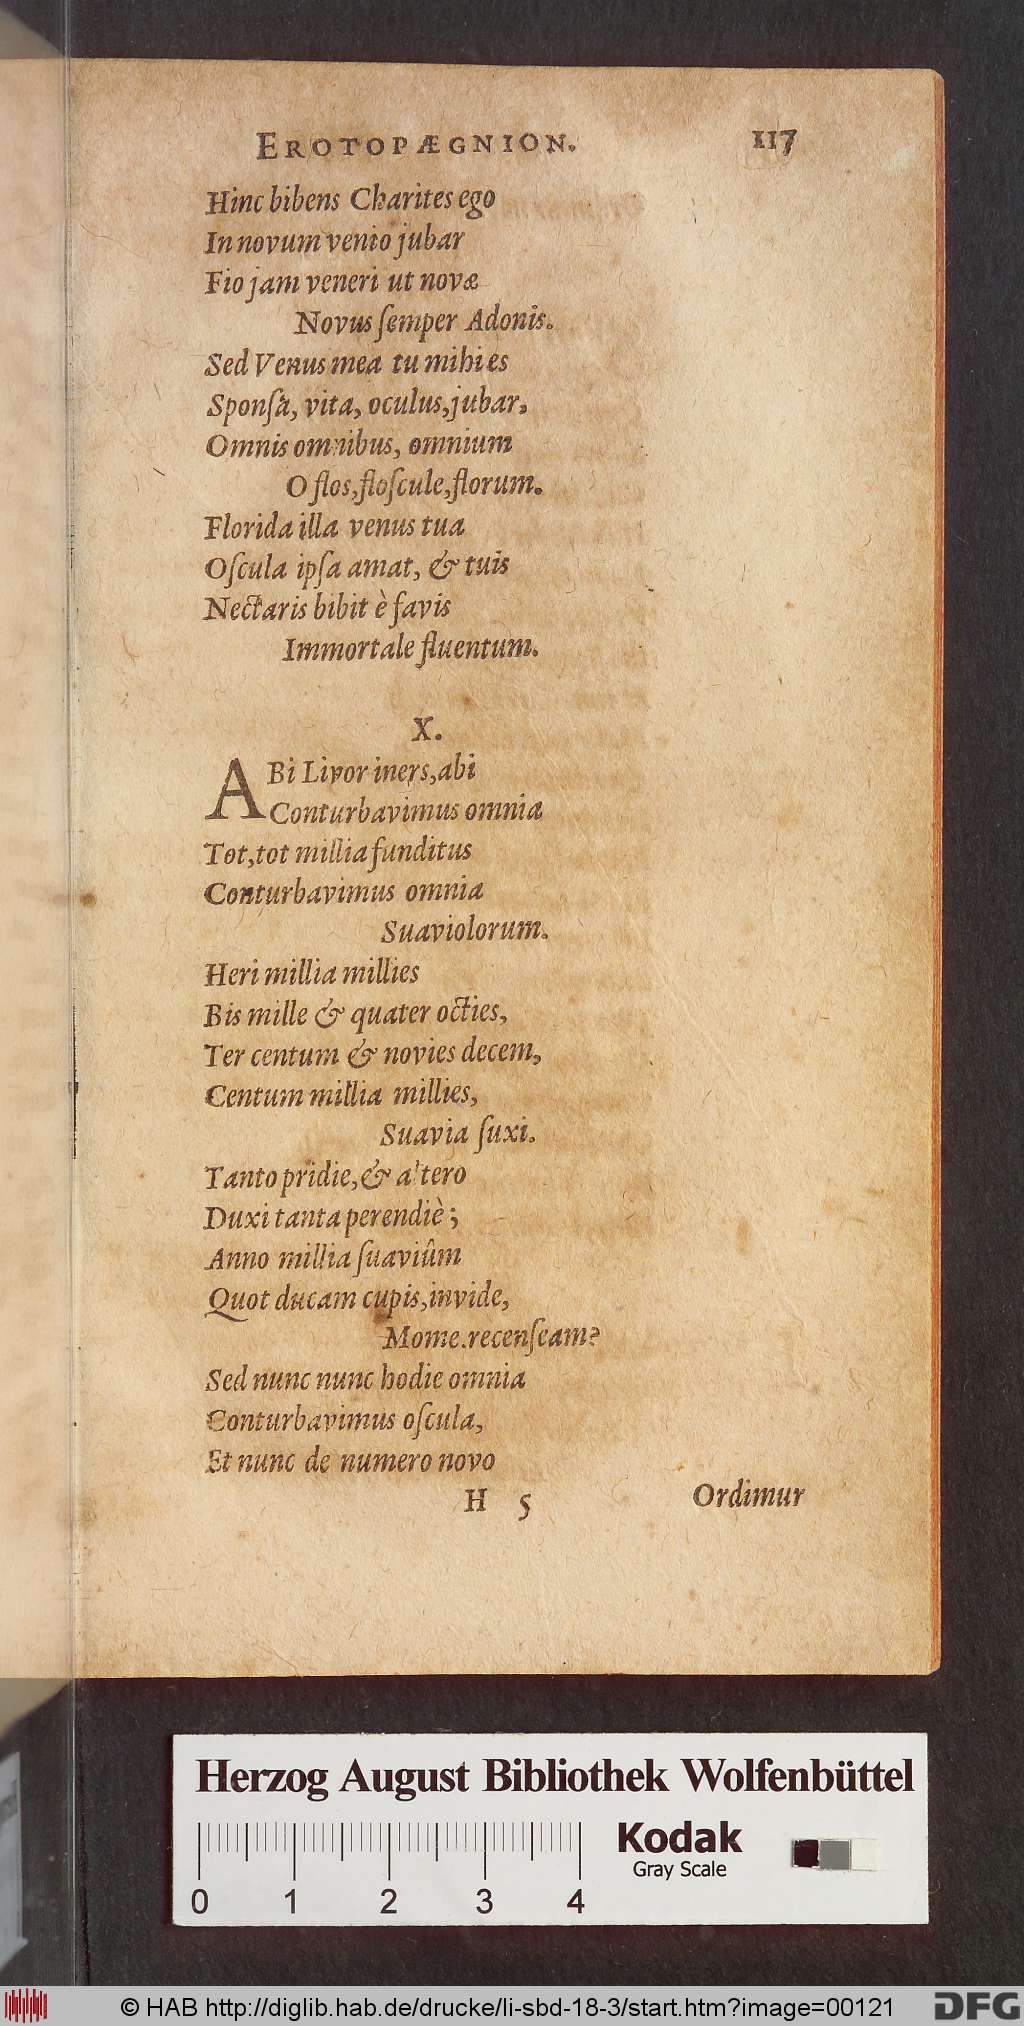 EROTOPÆGNION. 117
Hinc bibens Charites ego
In novum venio jubar
Fio jam veneri ut novæ
Novus ſemper Adonis.
Sed Venus mea tu mihi es
Sponſa, vita, oculus, jubar,
Omnis omnibus, omnium
O flos, floſcule, florum.
Florida illa venus tua
Oſcula ipſa amat, & tuis
Nectaris bibit è favis
Immortale fluentum.
X.
ABi Livor iners, abi
Conturbavimus omnia
Tot, tot millia funditus
Conturbavimus omnia
Suaviolorum.
Heri millia millies
Bis mille & quater octies,
Ter centum & novies decem,
Centum millia millies,
Suavia ſuxi.
Tanto pridie, & altero
Duxi tanta perendiè;
Anno millia ſuaviûm
Quot ducam cupis, invide,
Mome. recenſeam?
Sed nunc nunc hodie omnia
Conturbavimus oſcula,
Et nunc de numero novo
H 5 Ordimur
Herzog August Bibliothek Wolfenbüttel
Kodak
Gray Scale
0 1 2 3 4
© HAB http://diglib.hab.de/drucke/li-sbd-18-3/start.htm?image=00121
DFG